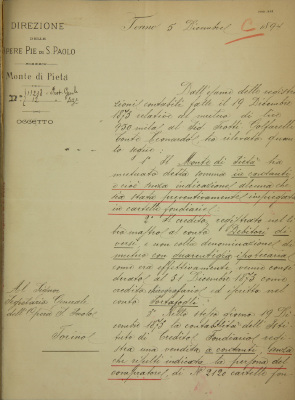 DIREZIONE
DELLE
OPERE PIE DI S. PAOLO
Monte di Pietà
OGGETTO
Torino 5 Dicembre 189
C
Dall'esame delle registra
zioni contabili fatte il 19 Dicembre
1873 relative al mutuo di Lire
430 mila al
Conte Leonardo ho rilevato quan
to segue:
1° Il Monte di Pietà ha
mutuato detta somma in contanti
e cioè senza indicazione alcuna che
sia stata preventivamente impiegata
in cartelle fondiarie.
2° Il credito, registrato nel li
bro mastro al conto Debitori di
versi e non colla denominazione di
mutuo con guarentigia ipotecaria
come era effettivamente, venne consi
derato al 31 Dicembre 1873 come
credito chirografario ed iscritto nel
conto Portafogli.
3° Nello stesso giorno 19 Di
cembre 1873 la contabilità dell'Isti
tuto di Credito Fondiario regi
stra una vendita a contanti, senza
che risulti indicata la persona del
compratore, di N° 2120 cartelle fon
Al Signor
Segretario Generale
dell'Opere di S. Paolo
Torino